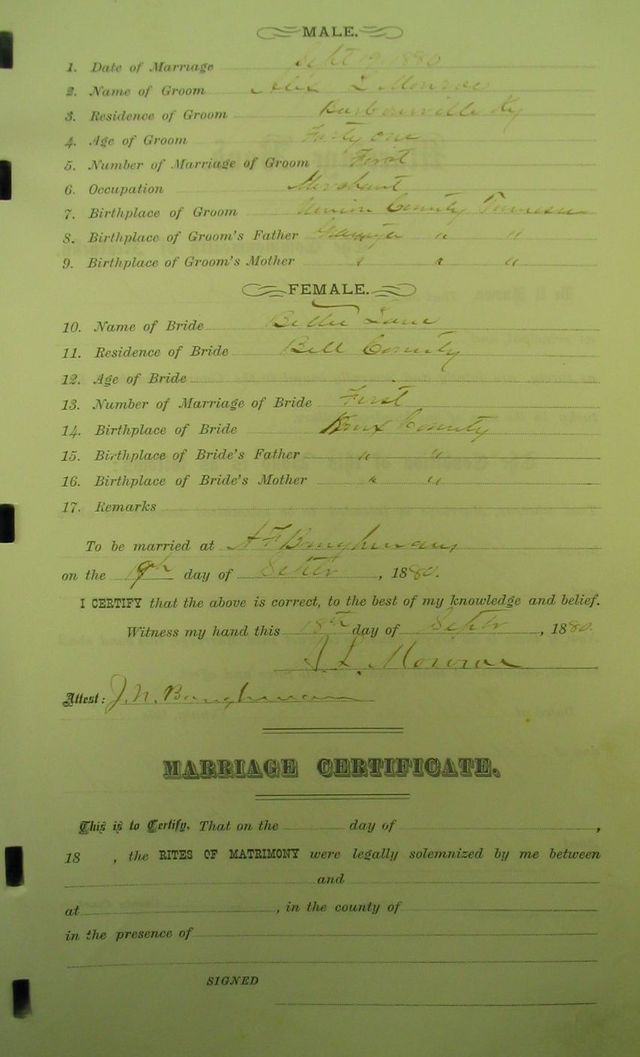 MALE.
1. Date of Marriage Sept 19 1880
2. Name of Groom Alex L Monroe
3. Residence of Groom Barbourville Ky
4. Age of Groom Forty one
5. Number of Marriage of Groom First
6. Occupation Merchant
7. Birthplace of Groom Union County Tennessee
8. Birthplace of Groom's Father " "
9. Birthplace of Groom's Mother " " "
FEMALE.
10. Name of Bride Bettie
11. Residence of Bride Bell County
12. Age of Bride
13. Number of Marriage of Bride First
14. Birthplace of Bride Knox County
15. Birthplace of Bride's Father " "
16. Birthplace of Bride's Mother " "
17. Remarks
To be married at A F Baughmans
on the 19th day of Septr, 1880.
I CERTIFY that the above is correct, to the best of my knowledge and belief.
Witness my hand this 18th day of Septr, 1880.
A. L. Monroe
Attest: J. N. Baughman
MARRIAGE CERTIFICATE.
This is to Certify, That on the day of ,
18 , the RITES OF MATRIMONY were legally solemnized by me between
and
at , in the county of
in the presence of
SIGNED